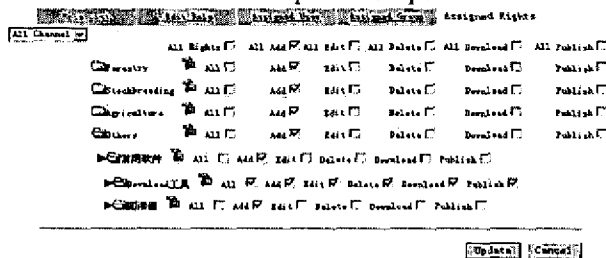 Edit Role Assigned User Assigned Group Assigned Rights
All Channel
All Rights All Add All Edit All Delete All Download All Publish
Forestry All Add Edit Delete Download Publish
Stockbreeding All Add Edit Delete Download Publish
Agriculture All Add Edit Delete Download Publish
Others All Add Edit Delete Download Publish
常用软件 All Add Edit Delete Download Publish
Download工具 All Add Edit Delete Download Publish
All Add Edit Delete Download Publish
Update Cancel